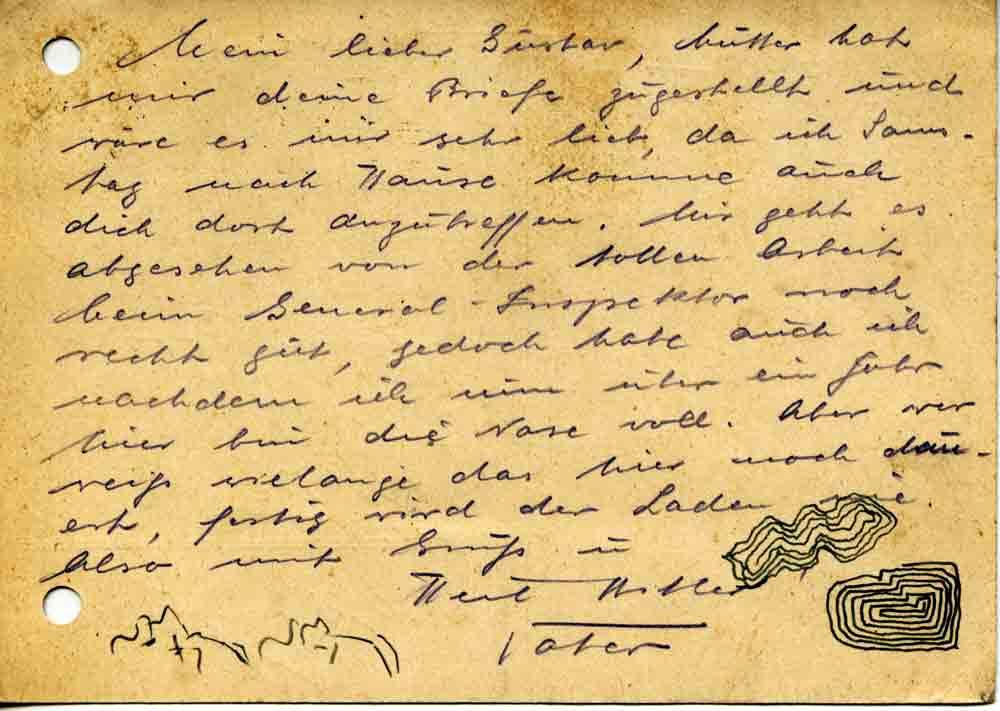 Mein lieber Gustav, Mutter hat
mir deine Briefe zugestellt und
wäre es mir sehr lieb, da ich Sams-
tag nach Hause komme auch
dich dort anzutreffen. Mir geht es
abgesehen von der tollen Arbeit
beim General-Inspektor noch
recht gut, jedoch habe auch ich
nachdem ich nun über ein Jahr
hier bin die Nase voll. Aber wer
weiß wielange das hier noch dau-
ert, fertig wird der Laden nie.
Also mit Gruß u
Heil Hitler
Vater